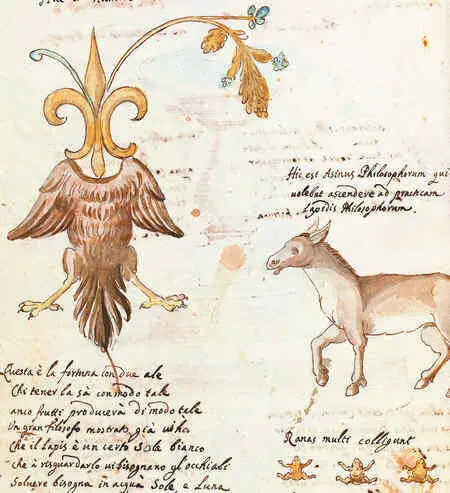 Hic est Asinus Philosophorum qui
volebat ascendere ad practicam
Lapidis Philosophorum.
Questa è la fortuna con due ale
Chi tener la sà con modo tale
anco frutti producerà di modo tale
Un gran filosofo mostrato già
che il lapis è un certo Sole bianco
che à risguardarlo vi bisognano gli occhiali
Solvere bisogna in acqua Sole, e Luna
Ranas multi colligunt